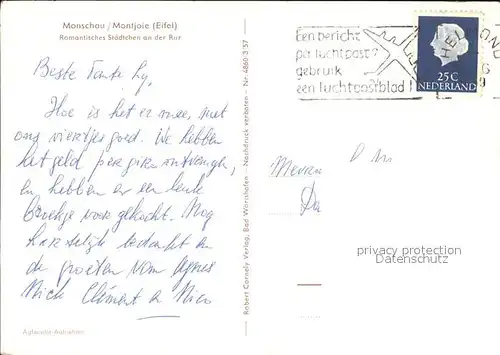 Monschau / Montjoie (Eifel)
Romantisches Städtchen an der Rur
Beste Tante Ly,
Hoe is het er mee, met
ons viertjes goed. We hebben
het geld per giro ontvangen,
en hebben er een leuk
broekje voor gekocht. Nog
hartelijk bedankt en
de groeten van Agnes
Nick Clément en Nico
Agfacolor-Aufnahme
Robert Cornely Verlag, Bad Wörishofen - Nachdruck verboten - Nr. 4860 3 57
Een bericht
per luchtpost?
gebruik
een luchtpostblad!
HELMOND
25 C
NEDERLAND
Mevrouw
privacy protection
Datenschutz